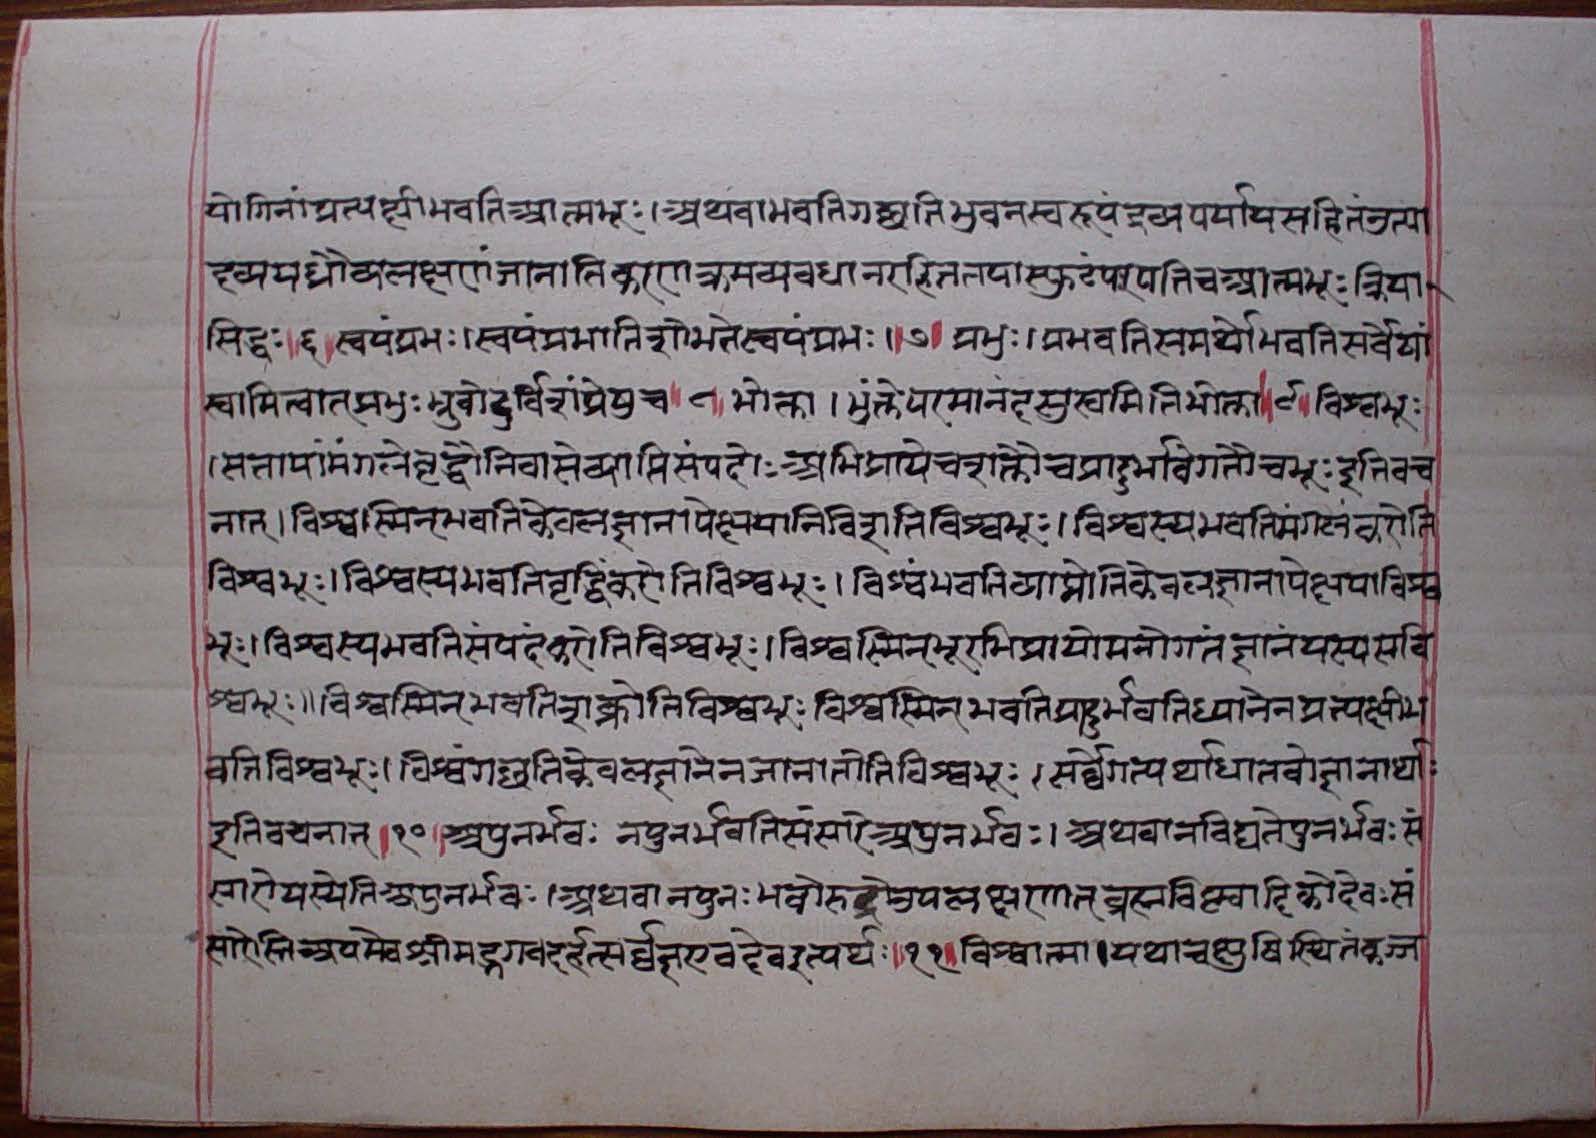 योगिनांप्रत्यक्षीभवतिआत्मभूः।अथवाभवतिगछतिभुवनस्वरूपंद्रव्यपर्यायसहितंउत्पा
दव्ययध्रौव्यलक्षणंजानातिकरणक्रमव्यवधानरहिततयास्फुटंपश्यतिचआत्मभूः क्रिया
सिद्धः॥६॥स्वयंप्रभः।स्वयंप्रभातिशोभतेस्वयंप्रभः।॥७॥ प्रभुः।प्रभवतिसमर्थोभवतिसर्वेषां
स्वामित्वात्प्रभुःभुवोदुर्विशंप्रेषुच॥८॥भोक्ता।भुंक्तेपरमानंदसुखमितिभोक्ता॥९॥विश्वभूः
।सत्तायांमंगलेवृद्धौनिवासेव्याप्तिसंपदोः अभिप्रायेचशक्तौचप्रादुर्भावेगतौचभूःइतिवच
नात्।विश्वस्मिन्भवतिकेवलज्ञानापेक्षयानिविशतिविश्वभूः।विश्वस्यभवतिमंगलंकरोति
विश्वभूः।विश्वस्यभवतिवृद्धिंकरोतिविश्वभूः।विश्वंभवतिव्याप्नोतिकेवलज्ञानापेक्षयाविश्व
भूः।विश्वस्यभवतिसंपदंकरोतिविश्वभूः।विश्वस्मिन्भूरभिप्रायोमनोगतंज्ञानंयस्यसवि
श्वभूः॥विश्वस्मिन्भवतिशक्नोतिविश्वभूःविश्वस्मिन्भवतिप्रादुर्भवतिध्यानेनप्रत्यक्षीभ
वतिविश्वभूः।विश्वंगछतिकेवलज्ञानेनजानातीतिविश्वभूः।सर्व्वेगत्यर्थाधातवोज्ञानार्थाः
इतिवचनात्॥१०॥अपुनर्भवः नपुनर्भवतिसंसारेअपुनर्भवः।अथवानविद्यतेपुनर्भवःसं
सारोयस्येतिअपुनर्भवः।अथवानपुनःभवोरुद्रोउपलक्षणात्ब्रह्मविष्ण्वादिकोदेवःसं
सारोस्तिअयमेवश्रीमद्भगवदर्हत्सर्व्वज्ञएवदेवइत्यर्थः॥११॥विश्वात्मा।यथाचक्षुषिस्थितंकज्ज